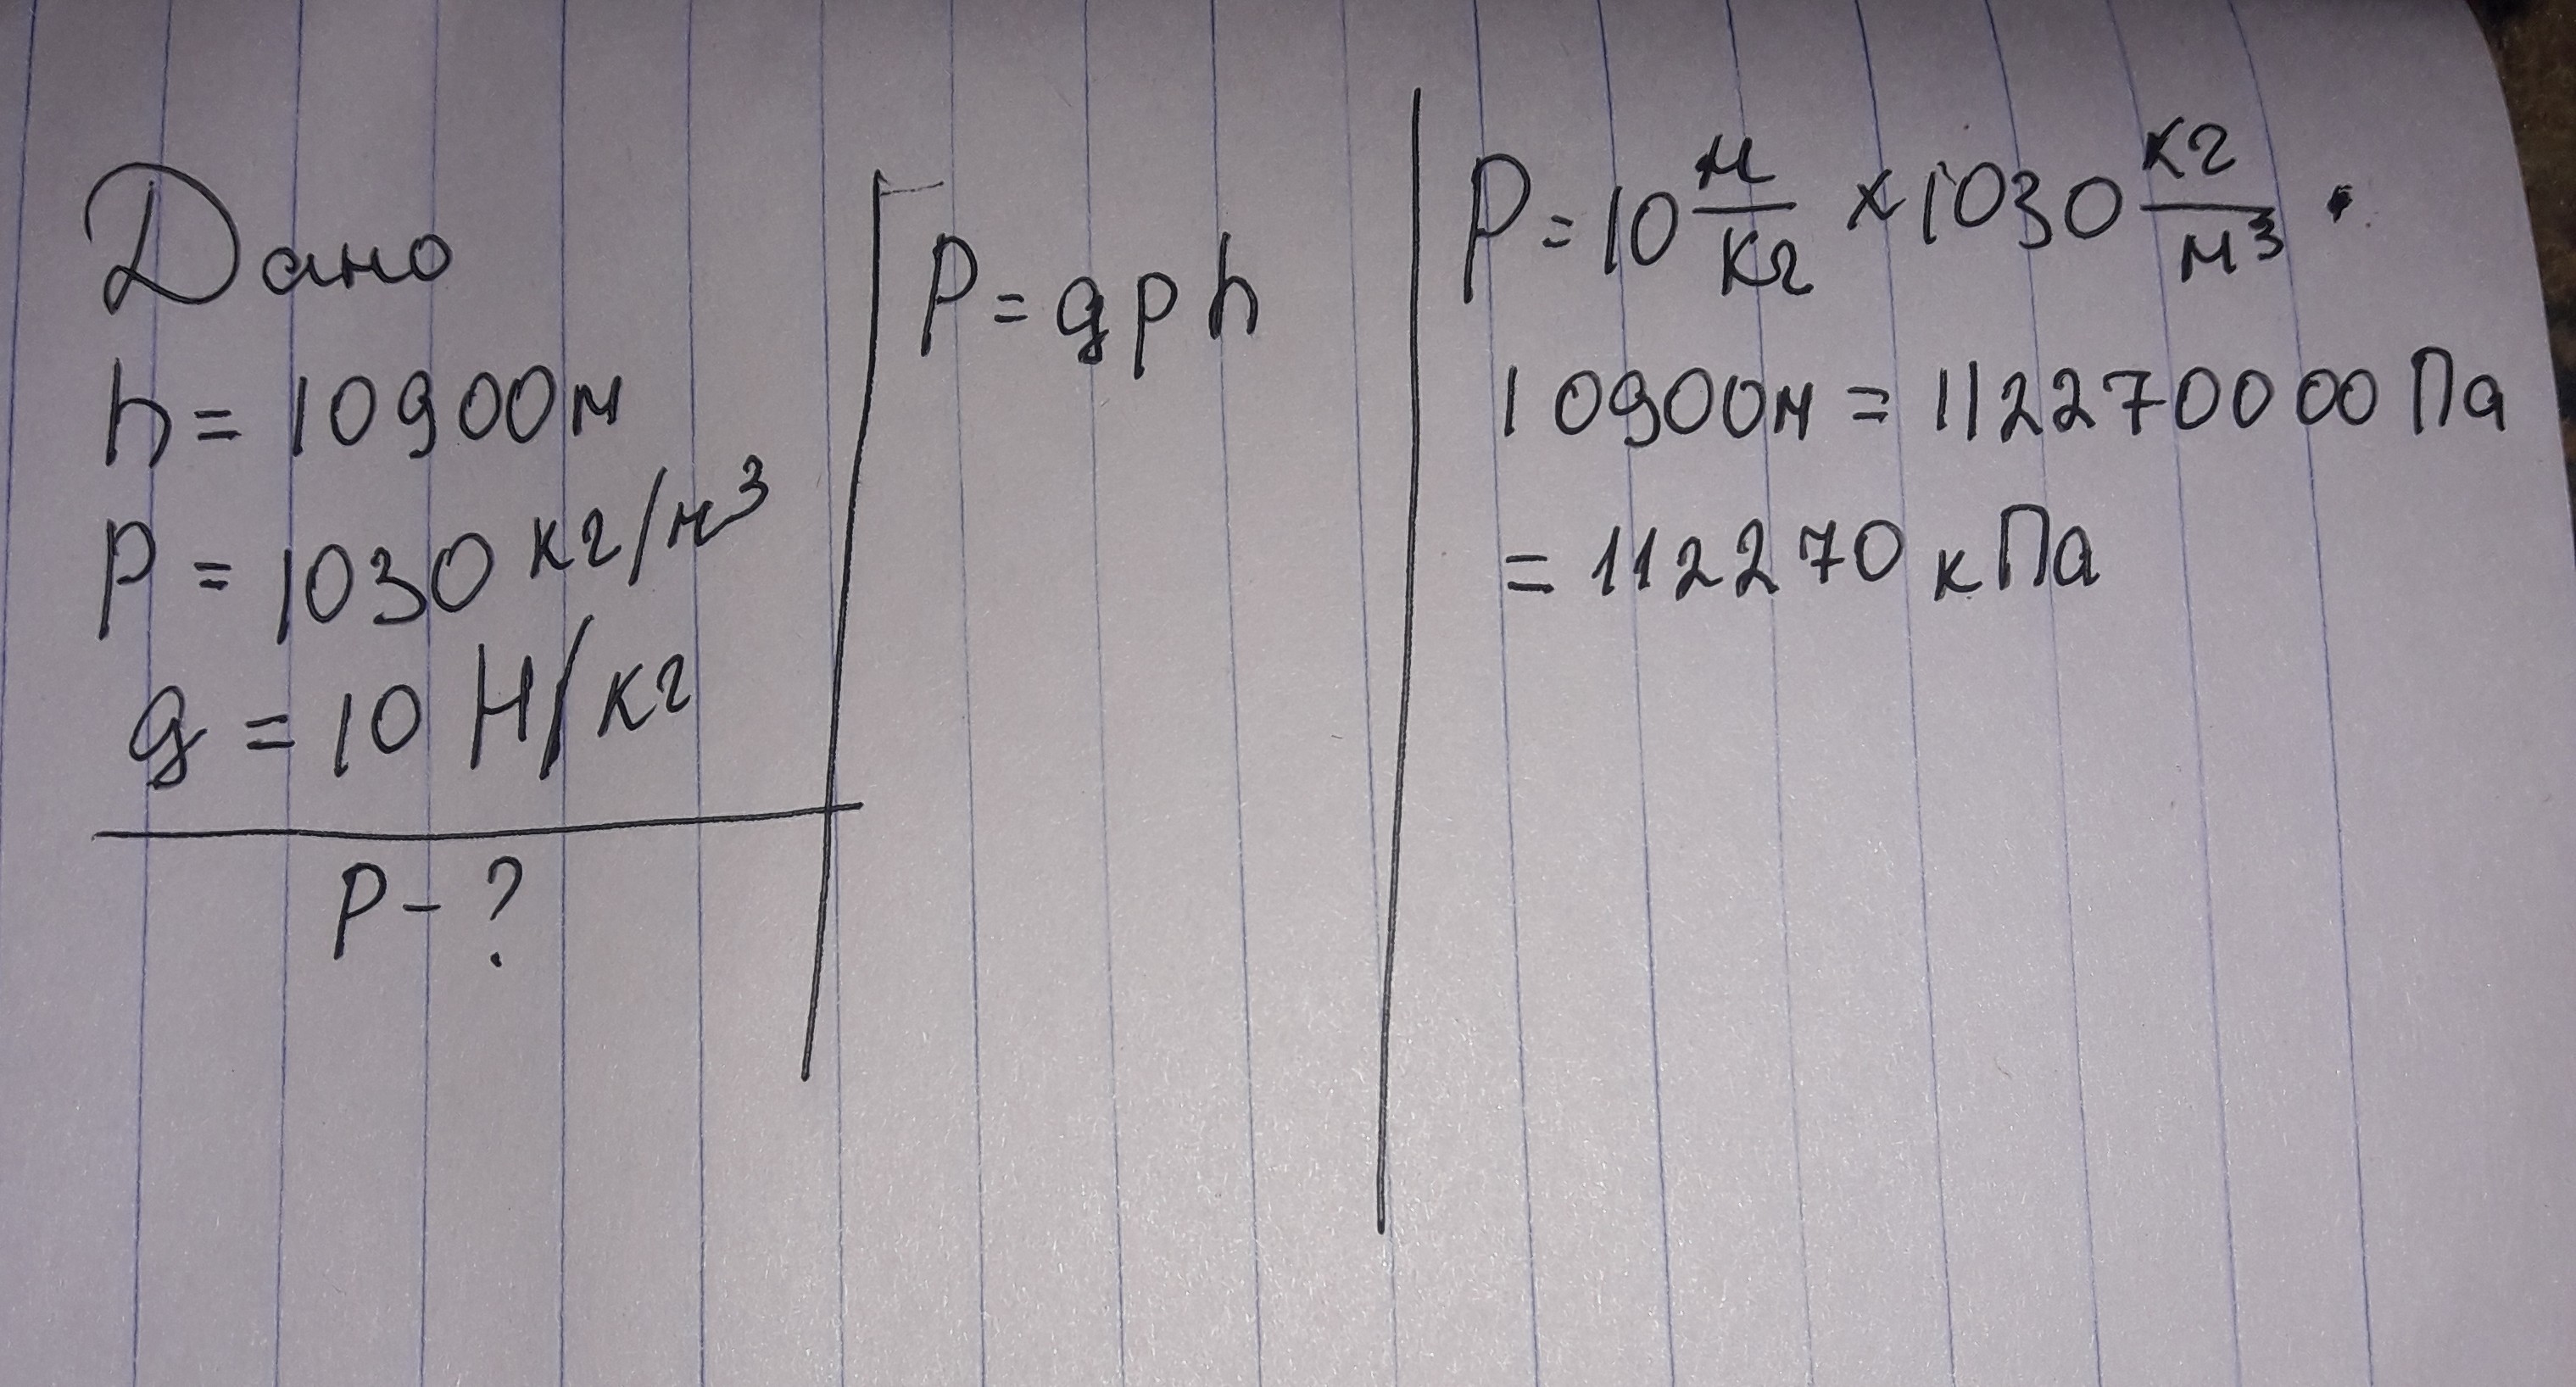 Дано
h = 10900м
P = 1030 кг/м³
g = 10 Н/кг
P - ?
P = gph
P = 10 м/кг × 1030 кг/м³ ·
10900м = 112270000 Па
= 112270 кПа